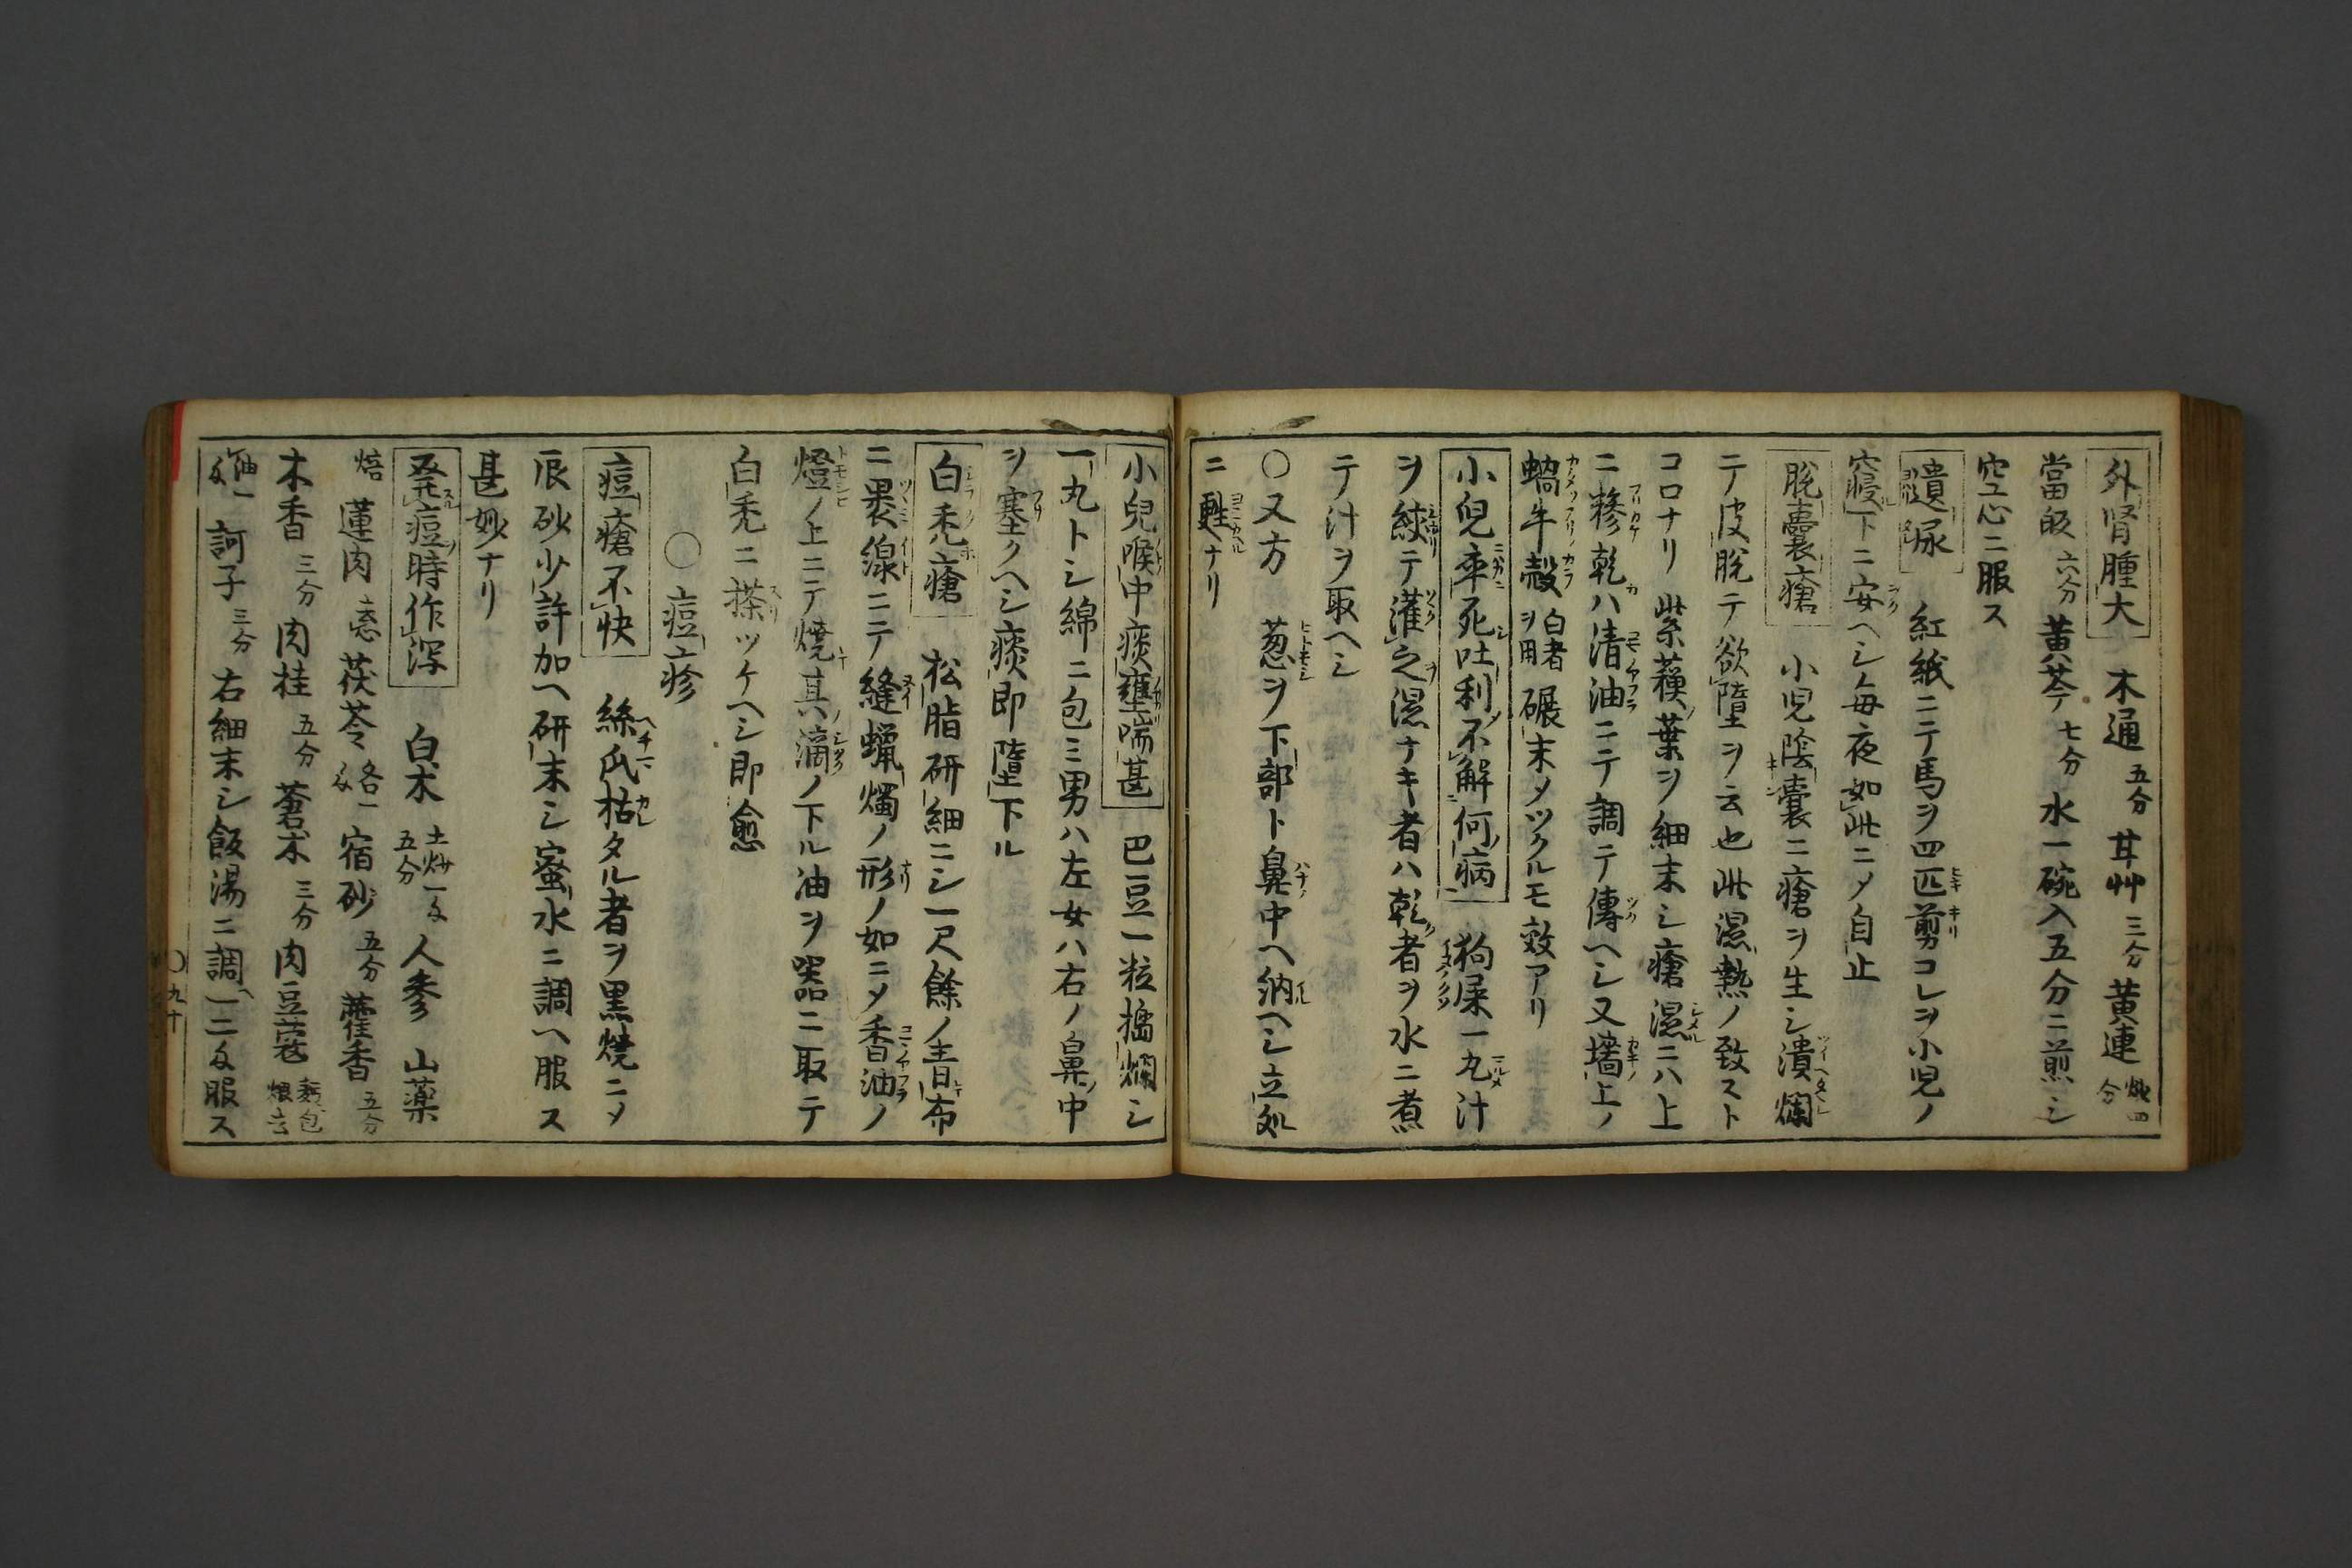 外腎腫大 木通五分 甘艸三分 黄連炒四分
當皈六分 黄芩七分 水一碗入五分ニ煎シ
空心ニ服ス
遺尿 紅紙ニテ馬ヲ四匹剪コレヲ小児ノ
寝下ニ安ヘシ毎夜如此ニ〆自止
脱嚢瘡 小児陰嚢ニ瘡ヲ生シ潰爛
テ皮脱テ欲墮ヲ云也此濕熱ノ致スト
コロナリ紫蘓葉ヲ細末シ瘡濕ニハ上
ニ糝乾ハ清油ニテ調テ傳ヘシ又墻上ノ
蝸牛殻白者ヲ用碾末メツクルモ效アリ
小児卒死吐利不解何病 狗屎一丸汁
ヲ絞テ灌之濕ナキ者ハ乾者ヲ水ニ煮
テ汁ヲ取ヘシ
〇又方 葱ヲ下部ト鼻中ヘ納ヘシ立処
ニ甦ナリ
小兒喉中痰壅喘甚 巴豆一粒搗爛シ
一丸トシ綿ニ包ミ男ハ左女ハ右ノ鼻中
ヲ塞クヘシ痰即墮下ル
白禿瘡 松脂研細ニシ一尺餘ノ青布
ニ裹線ニテ縫蠟燭ノ形ノ如ニ〆香油ノ
燈ノ上ニテ焼其滴ノ下ル油ヲ器ニ取テ
白禿ニ搽ツケヘシ即愈
〇痘疹
痘瘡不快 絲瓜枯タル者ヲ黒焼ニ〆
辰砂少許加ヘ研末シ蜜水ニ調ヘ服ス
甚妙ナリ
発痘時作瀉 白朮土炒一匁五分 人參 山藥
焙 蓮肉 茯苓各一匁 宿砂五分 藿香五分
木香三分 肉桂五分 蒼朮三分 肉豆蔲
訶子三分 右細末シ飯湯ニ調一二匁服ス
〇九十